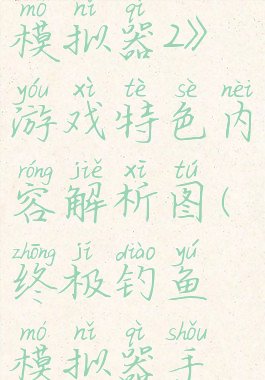 mó nǐ qì
模拟器2》
yóu xì tè sè nèi
游戏特色内
róng jiě xī tú
容解析图(
zhōng jí diào yú
终极钓鱼
mó nǐ qì shǒu
模拟器手